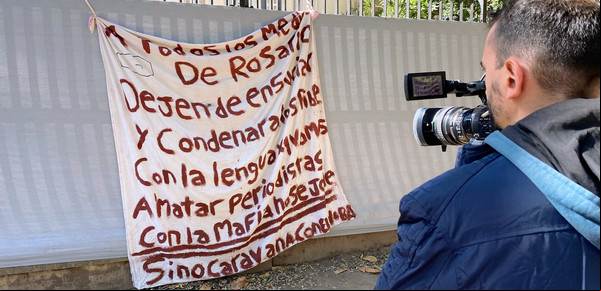 A TODOS LOS
De ROSARIO
Dejen de ensuciar
y Condenar a los Pibe
Con la lengua xq vamos
A Matar periodistas
Con LA MaFiA no se Jode
Sino CaravanA Con